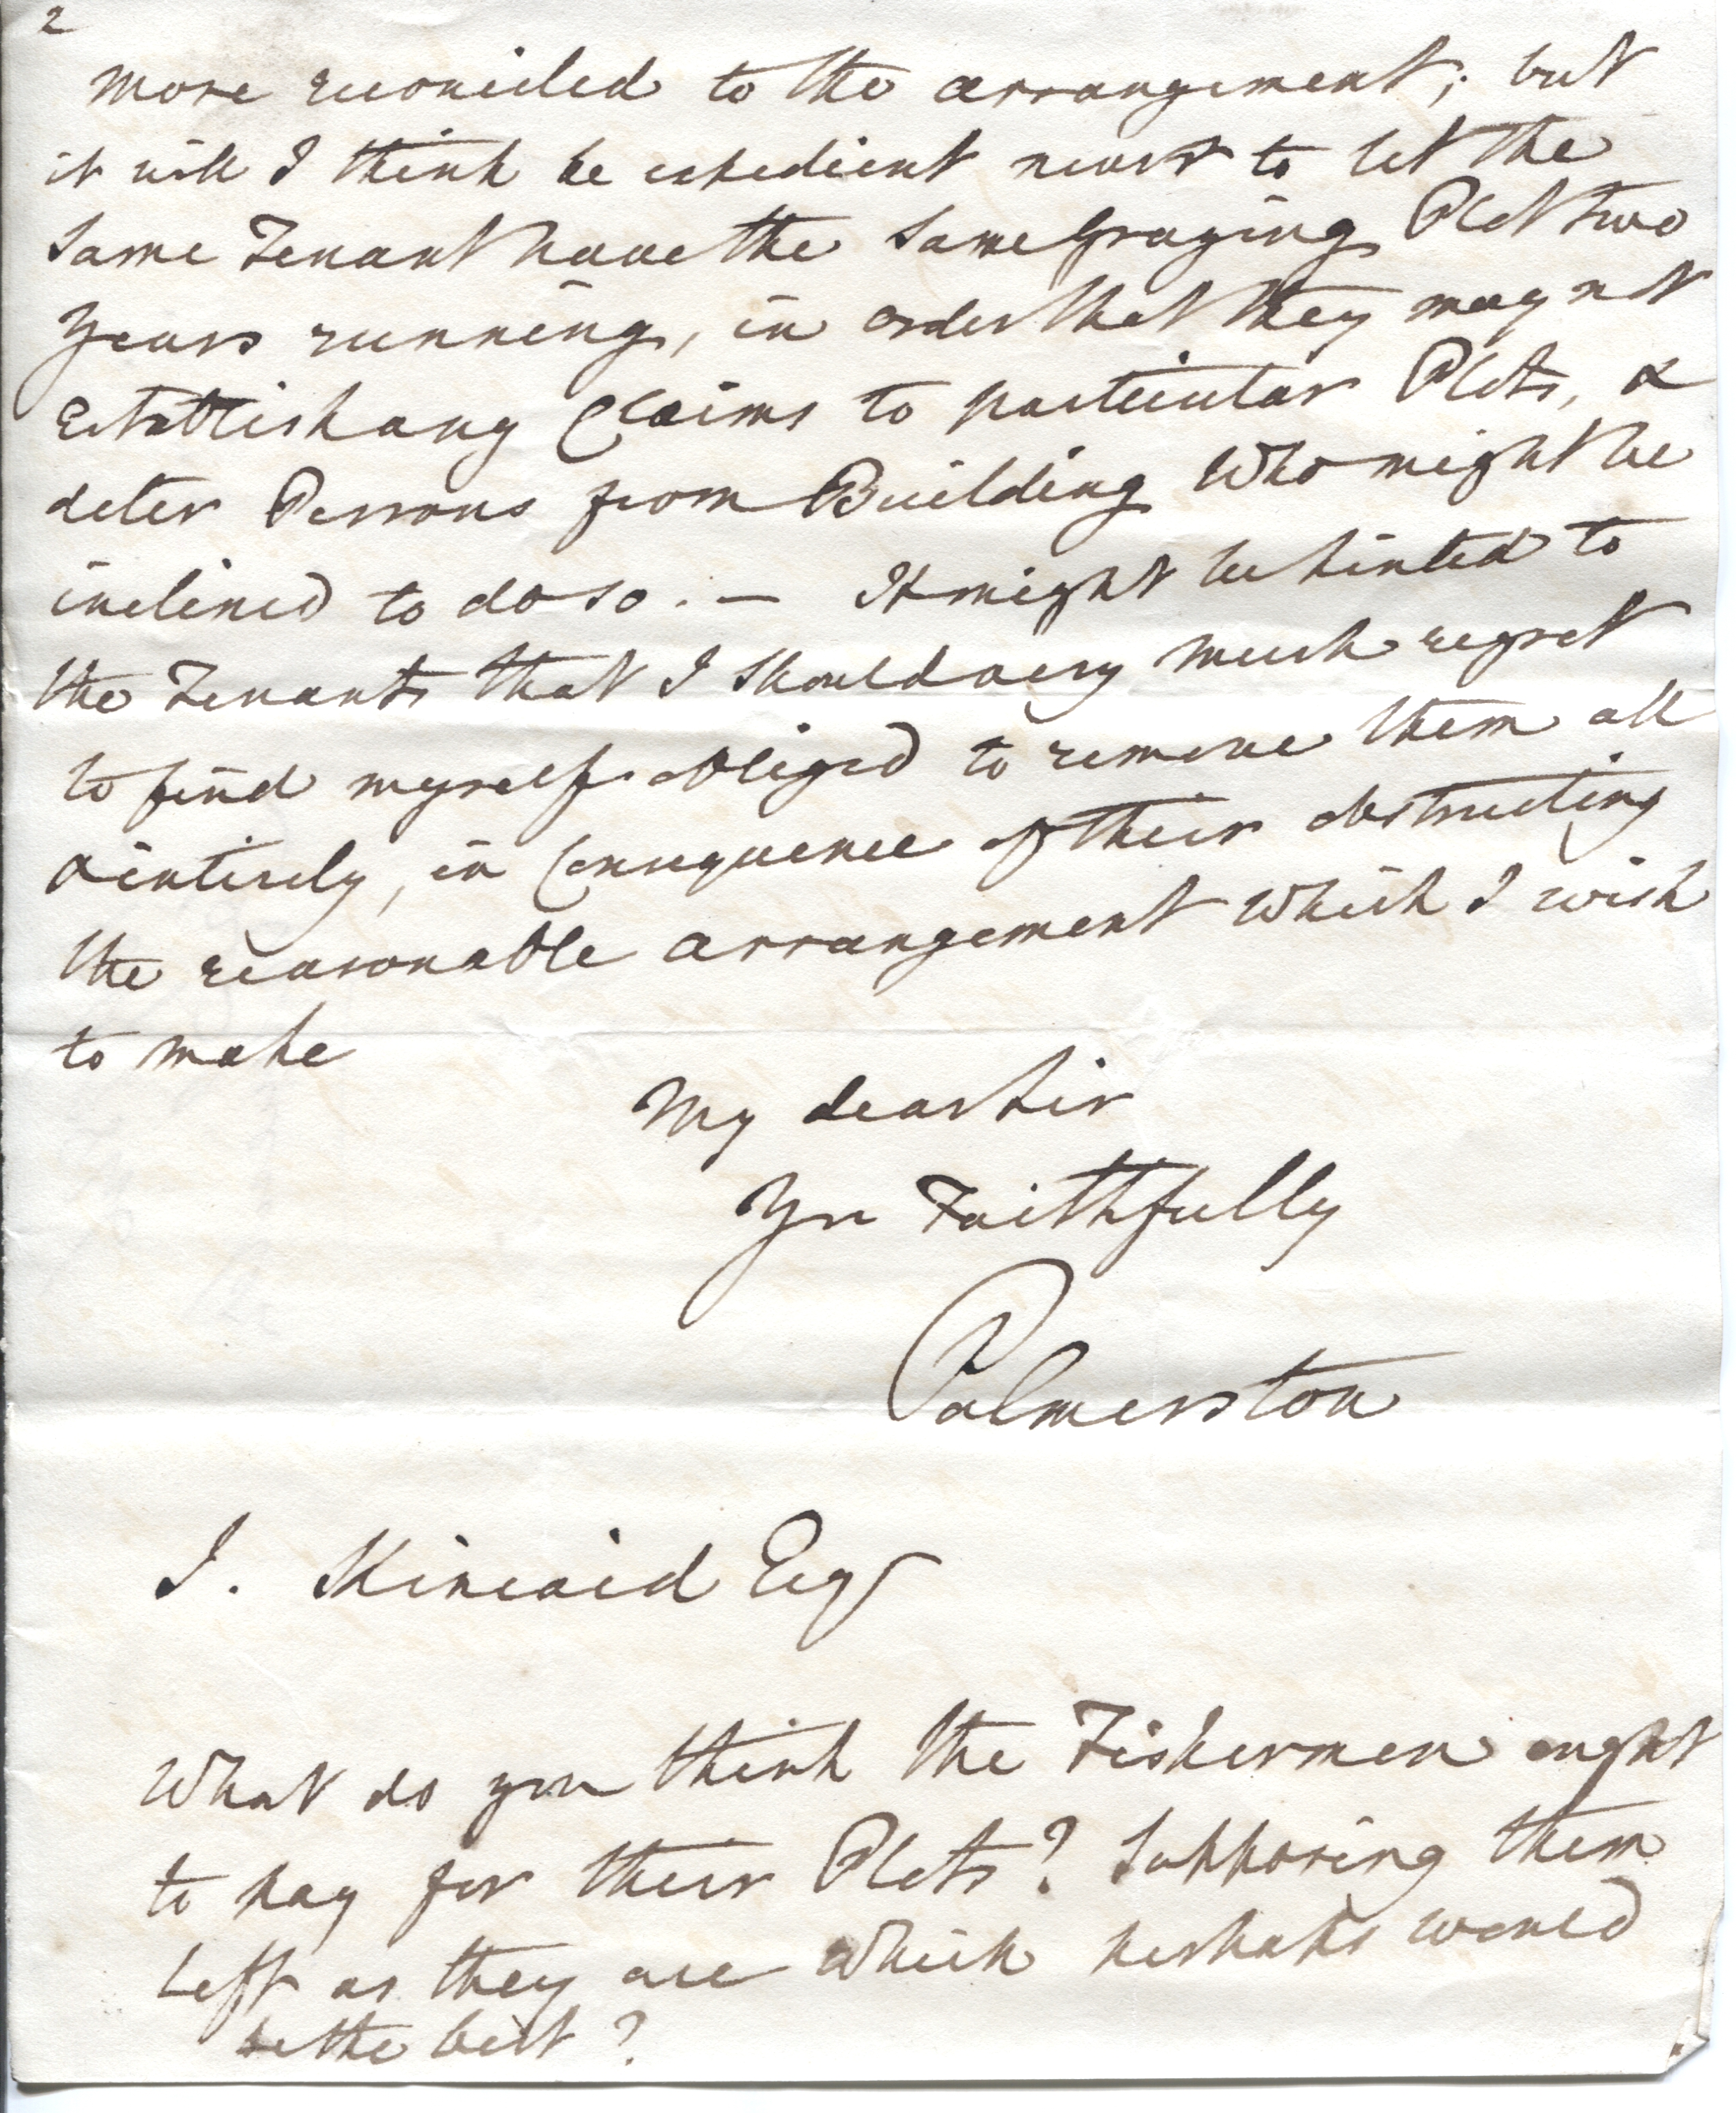 2
more reconciled to the arrangement; but
it will I think be expedient never to let the
same Tenant have the same Grazing Plot two
years running, in order that they may not
establish any Claims to particular Plots, &
deter Persons from Building who might be
inclined to do so. — It might be hinted to
the Tenants that I should very much regret
to find myself obliged to remove them all
& intirely, in Consequence of their obstructing
the reasonable arrangement which I wish
to make
My dear Sir
Yrs Faithfully
Palmerston
J. Kincaid Esqr
What do you think the Fishermen ought
to pay for their Plots? Supposing them
left as they are which perhaps would
be the best?